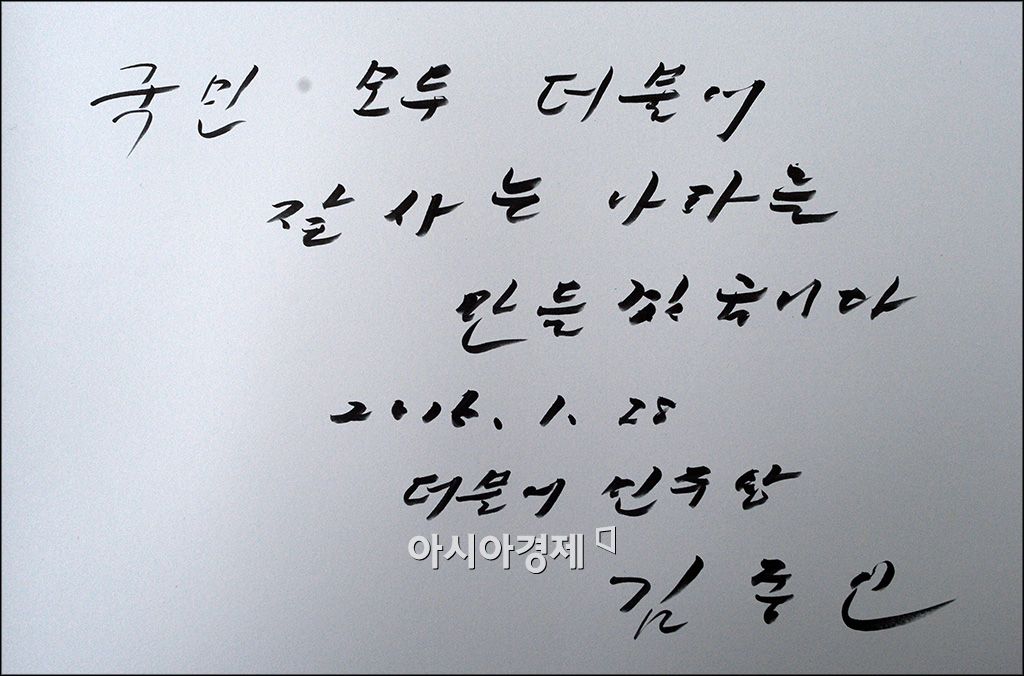 국민 모두 더불어
잘 사는 나라를
만들겠습니다
2016. 1. 28
더불어 민주당
아시아경제
김종인